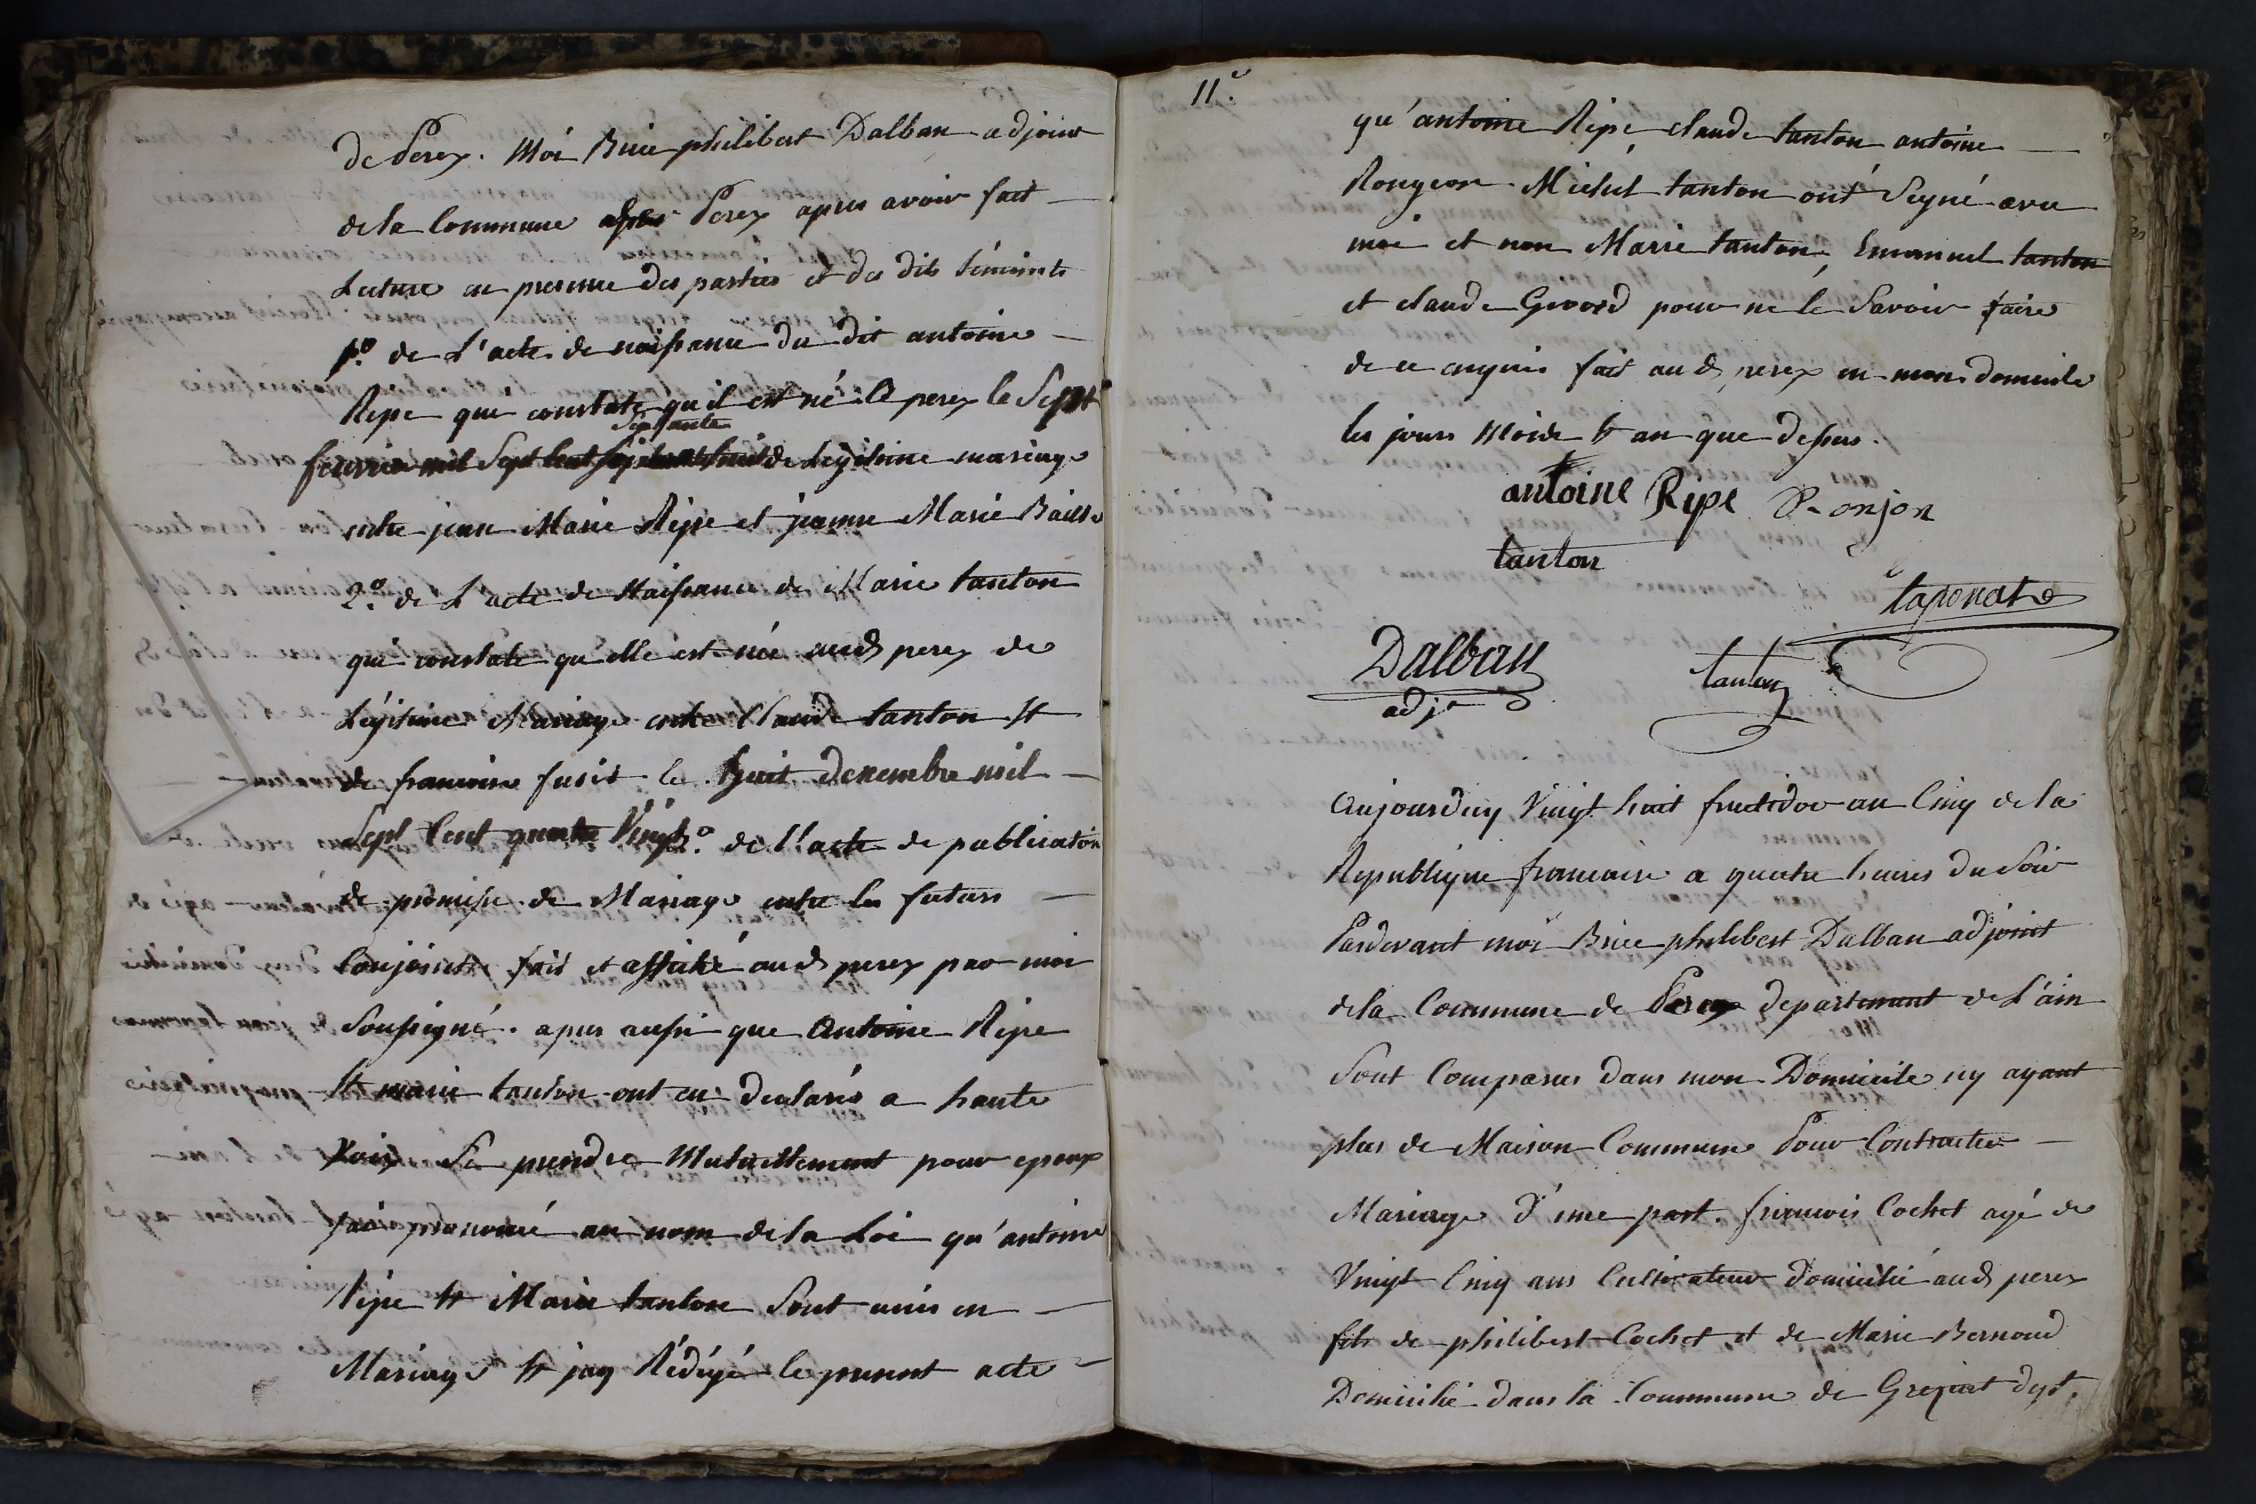 de Perex. Moi Brice philibert Dalban adjoint
de la Commune Perex apres avoir fait
Lecture en presence des parties et des dits témoints
1.º de L'acte de naissance du dit antoine
Ripe qui constate qu'il est né a perex le Sept
Septante
fevrier mil Sept Cent de Legitime mariage
entre jean Marie Ripe et jeanne Marie
2.º de L'acte de Naissance de Marie tanton
qui constate qu'elle est née aud perex de
Légitime Mariage entre Claude tanton et
de francoise fusit le huit decembre mil
Sept Cent quatre Vingt 3.º de L'acte de publication
de promisse de Mariage entre les futurs
Conjoints fait et affiché aud perex par moi
Soussigné. apres aussi que Antoine Ripe
et marie tanton ont eu declarés a haute
Voix Se prendre Mutuellement pour epoux
jai prononcé au nom de la Loi qu'antoine
Ripe et Marie tanton Sont unis en
Mariage et jay Rédigé le present acte
11.e
qu'antoine Ripe, claude tanton antoine
Rongeon Michel tanton ont Signé avec
moi et non Marie tanton, Emanuel tanton
et claude Gevord pour ne le Savoir faire
de ce enquis fait aud perex en mon domicile
les jours Mois et an que dessus.
antoine Ripe Ronjon
tanton
taponat
Dalban tanton
adjt
Aujourduy Vingt huit fructidor an Cinq de la
Republique francaise a quatre heures du Soir
Pardevant moi Brice philibert Dalban adjoint
de la Commune de Perex departement de L'ain
Sont Comparus dans mon Domicile ny ayant
plus de Maison Commune Pour Contracter
Mariage d'une part. francois Cochet agé de
Vingt Cinq ans Cultivateur domicilié aud perex
fils de philibert Cochet et de Marie Bernoud
Domicilié dans la Commune de dept.